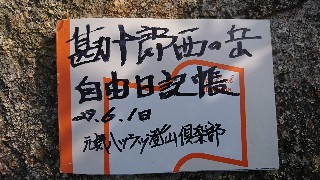 勘十郎西の岳
自由日記帳
29.6.1日
元気ハツラツ登山倶楽部